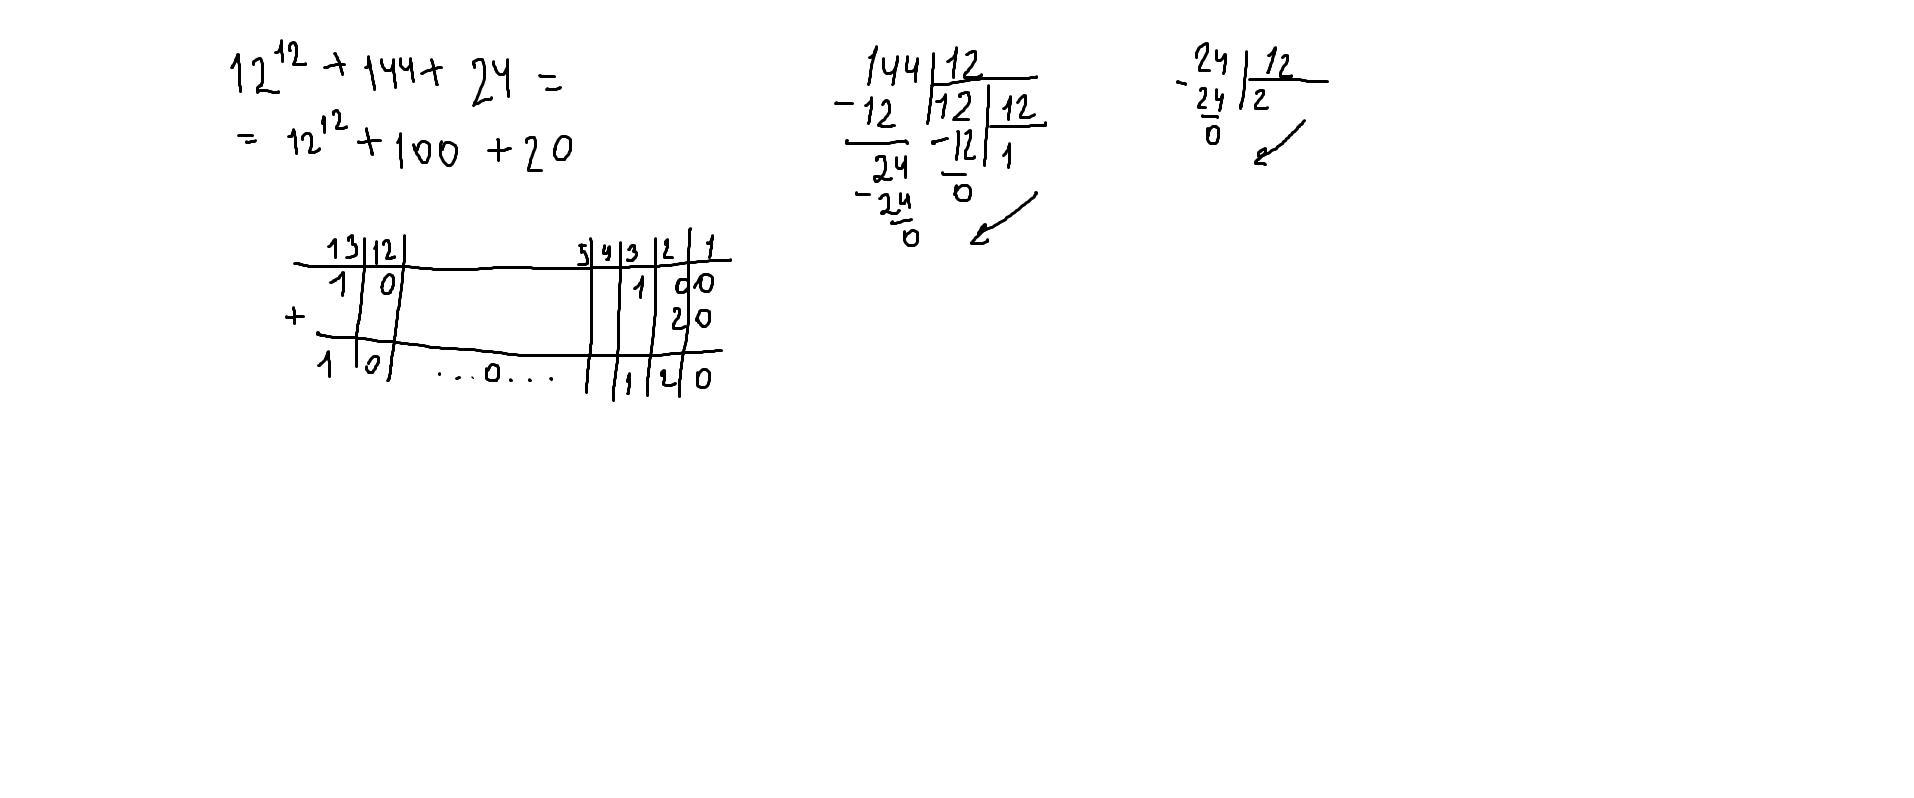 12^12 + 144 + 24 =
= 12^12 + 100 + 20
144 | 12
- 12 | 12 | 12
24 - 12 | 1
- 24 0
0
24 | 12
- 24 | 2
0
13 | 12 | 5 | 4 | 3 | 2 | 1
1 | 0 | 1 | 0 | 0
+ 2 | 0
1 | 0 | ...0... | 1 | 2 | 0